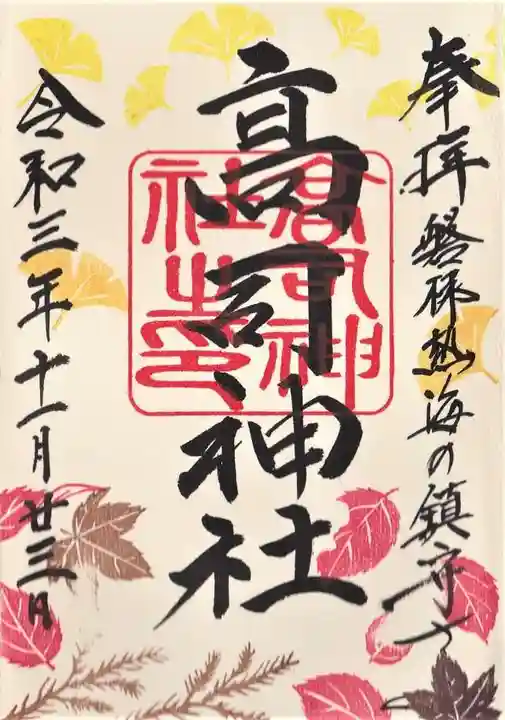 奉拝 磐梯熱海の鎮守さ
高司神社
高司神社之印
令和三年十一月廿三日